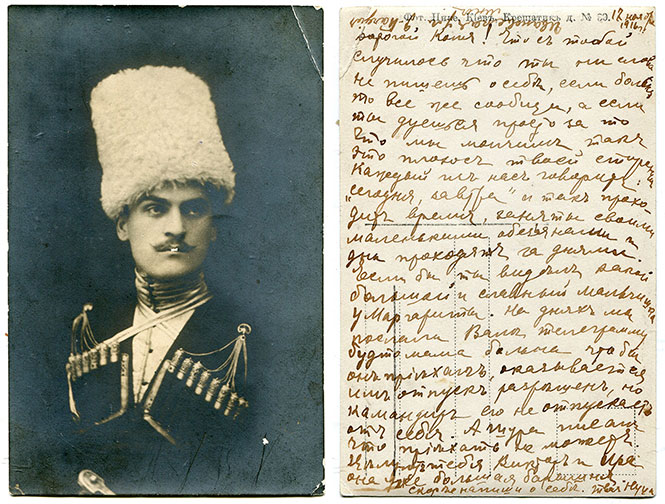 Фот. Цино. Кіев. Крещатик д. №
12 ноября
1916 г.
Дорогой Коля! Что съ тобой
случилось что ты ни слова
не пишешь о себѣ, если болен
то все же сообщи, а если
ты дуешься просто за то
что мы молчимъ такъ
это плохо съ твоей стороны
Каждый изъ насъ говоритъ:
"сегодня, завтра" и такъ прохо-
дитъ время, заняты своими
маленькими обезьянами и
дни проходятъ за днями.
Если бы ты видѣлъ какой
большой и славный мальчишка
у Маргариты. На дняхъ мы
послали Валѣ телеграмму
будто мама больна чтобы
онъ пріѣхалъ, оказывается
имъ отпускъ разрѣшенъ, но
командиръ его не отпускаетъ
отъ себя. А Шура писалъ
что пріѣхать не можетъ
тебя и Ира
она уже большая барышня
скорѣе напиши о себѣ. Твой